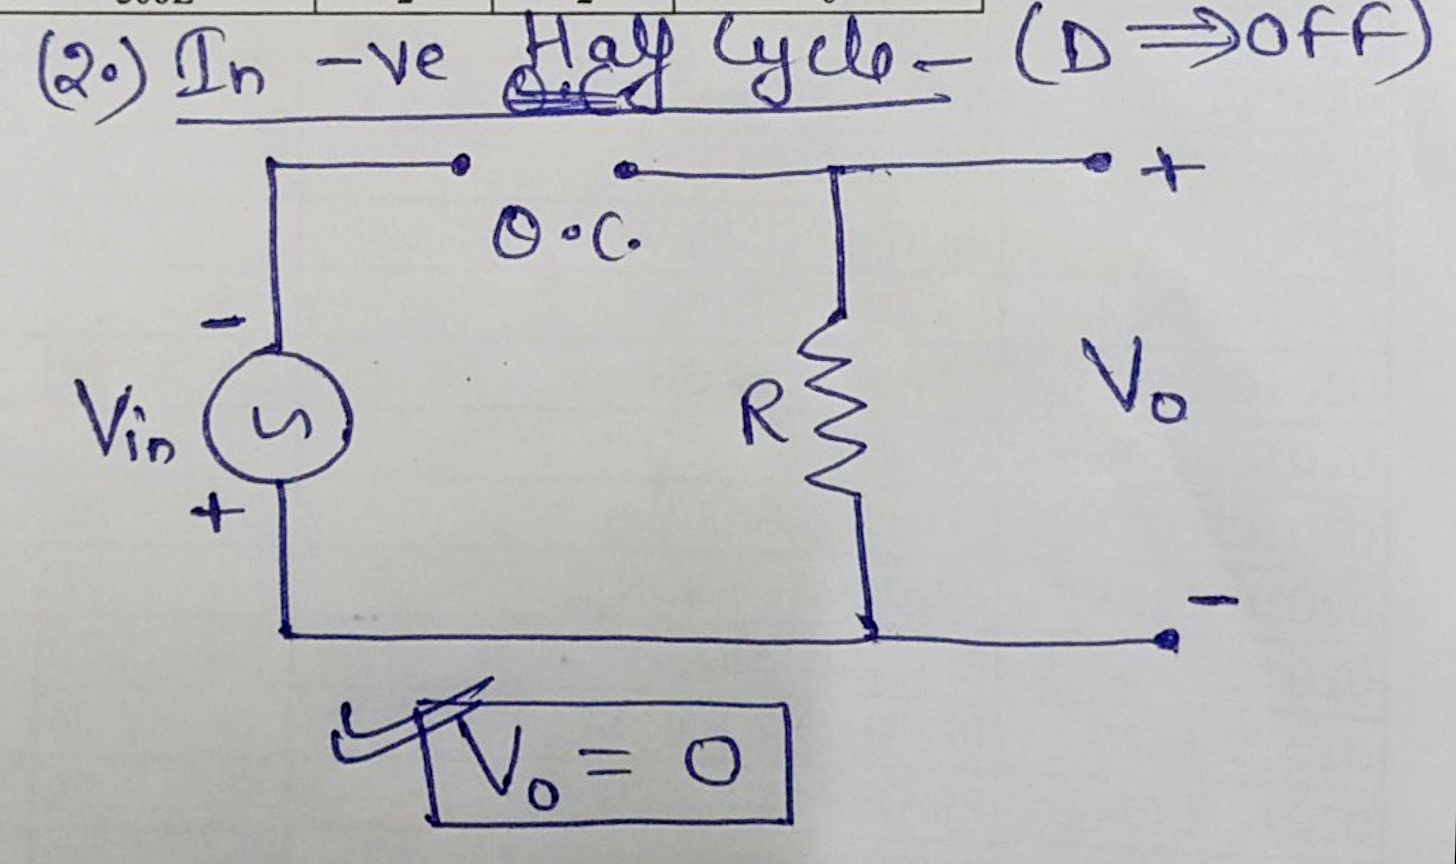 (2.) In -ve Half Cycle - (D ⇒ OFF)
+
O.C.
-
Vin
R
Vo
+
-
Vo = 0